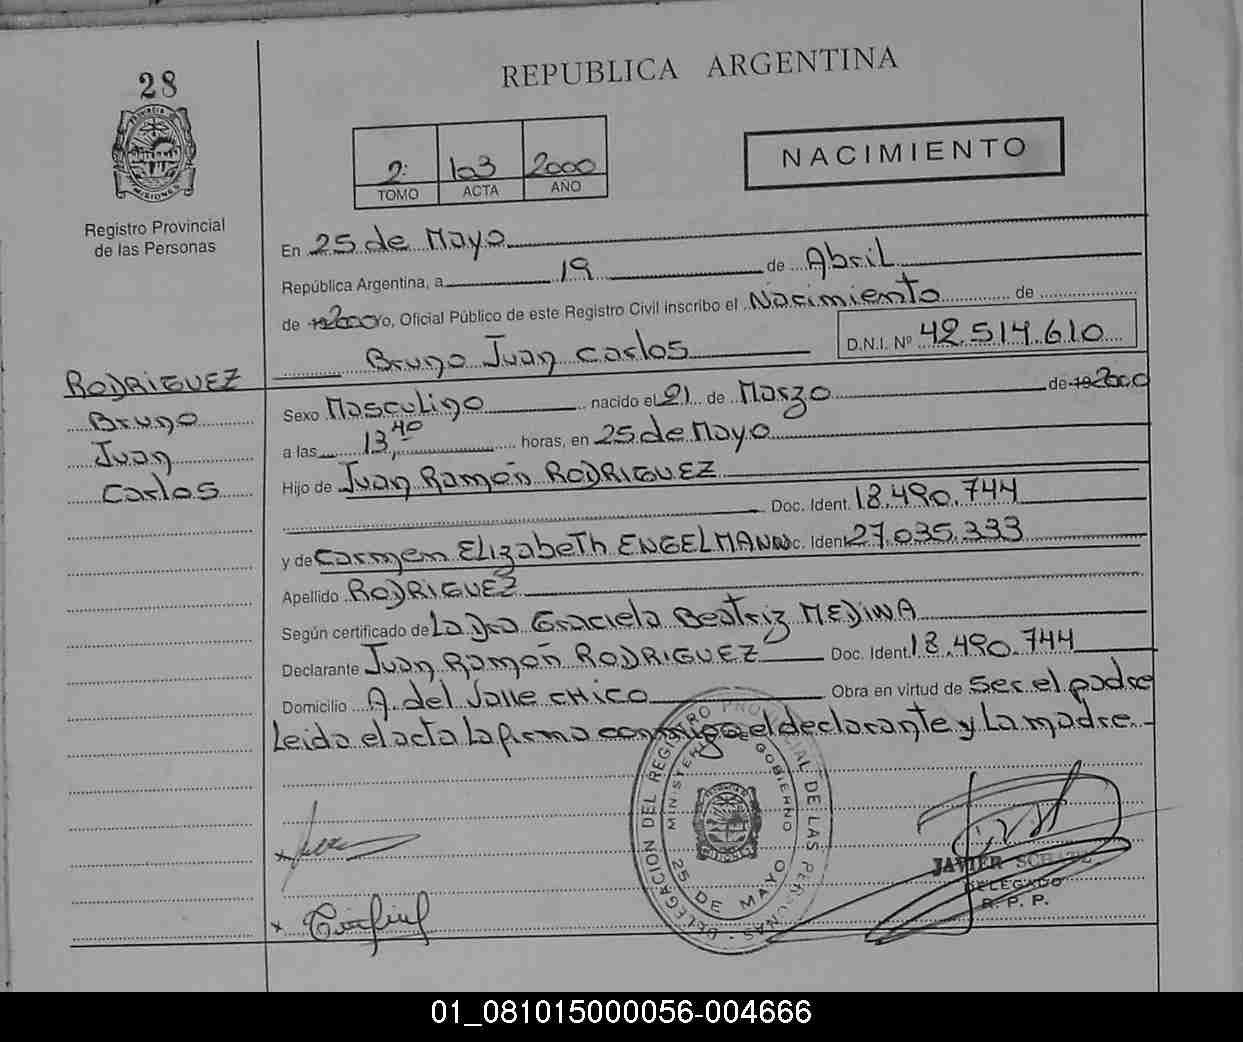 28
REPUBLICA ARGENTINA
2º 103 2000
TOMO ACTA AÑO
NACIMIENTO
Registro Provincial
de las Personas
En 25 de Mayo
República Argentina, a 19 de Abril
de 2000 yo, Oficial Público de este Registro Civil inscribo el Nacimiento de
Bruno Juan Carlos D.N.I. Nº 42.514.610
RODRIGUEZ
Bruno
Juan
Carlos
Sexo Masculino nacido el 21 de Marzo de 2000
a las 13,40 horas, en 25 de Mayo
Hijo de Juan Ramón RODRIGUEZ
Doc. Ident. 18.490.744
y de Carmen Elizabeth ENGELMANN Doc. Ident. 27.035.333
Apellido RODRIGUEZ
Según certificado de La Dra Graciela Beatriz MEDINA
Declarante Juan Ramón RODRIGUEZ Doc. Ident. 18.490.744
Domicilio A. del Valle CHICO Obra en virtud de Ser el padre
Leida el acta la firma conmigo el declarante y La madre.-
DELEGACION DEL REGISTRO PROVINCIAL DE LAS PERSONAS
MINISTERIO GOBIERNO
25 DE MAYO
JAVIER
DELEGADO
R. P. P.
01_081015000056-004666